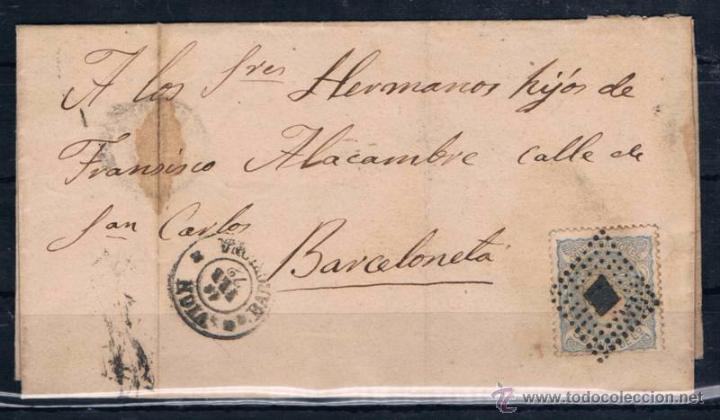 A los Sres Hermanos hijos de
Fransisco Alacambre calle de
San Carlos
Barceloneta
VICH
FEB
72
BAR
todocoleccion
www.todocoleccion.net